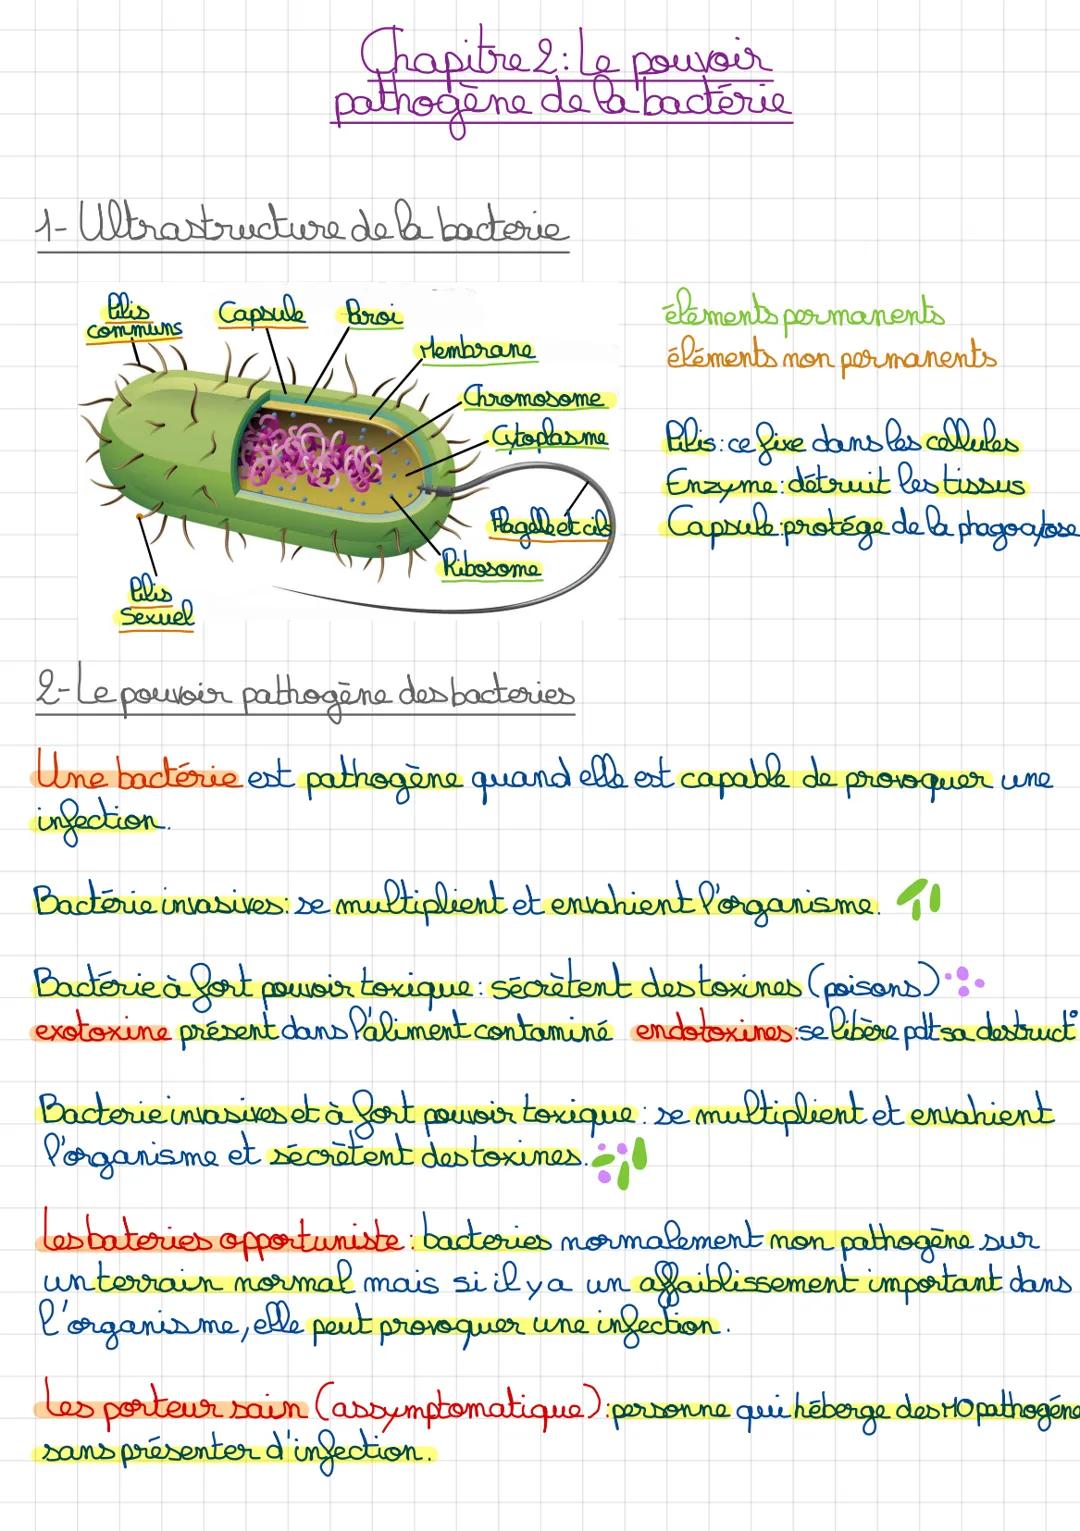 Chapitre 2: Le pouvoir
pathogène de la bactérie
1- Ultrastructure de la bacterie
Pilis
communs
Capsule
Paroi
Membrane
Chromosome
Cytoplasme
Flagelle et cils
Ribosome
Pilis
Sexuel
éléments permanents
éléments non permanents
Pilis: ce fixe dans les cellules
Enzyme: détruit les tissus
Capsule: protége de la phagocytose
2- Le pouvoir pathogène des bacteries
Une bactérie est pathogène quand elle est capable de provoquer une
infection.
Bactérie invasives: se multiplient et envahient l'organisme.
Bactérie à fort pouvoir toxique: sécrètent des toxines (poisons)
exotoxine présent dans l'aliment contaminé endotoxines: se libère pdt sa destruct°
Bacterie invasives et à fort pouvoir toxique: se multiplient et envahient
l'organisme et sécrètent des toxines.
Les bateries opportuniste: bacteries normalement non pathogène sur
un terrain normal mais si il y a un affaiblissement important dans
l'organisme, elle peut provoquer une infection.
Les porteur sain (assymptomatique): personne qui héberge des MO pathogéne
sans présenter d'infection.